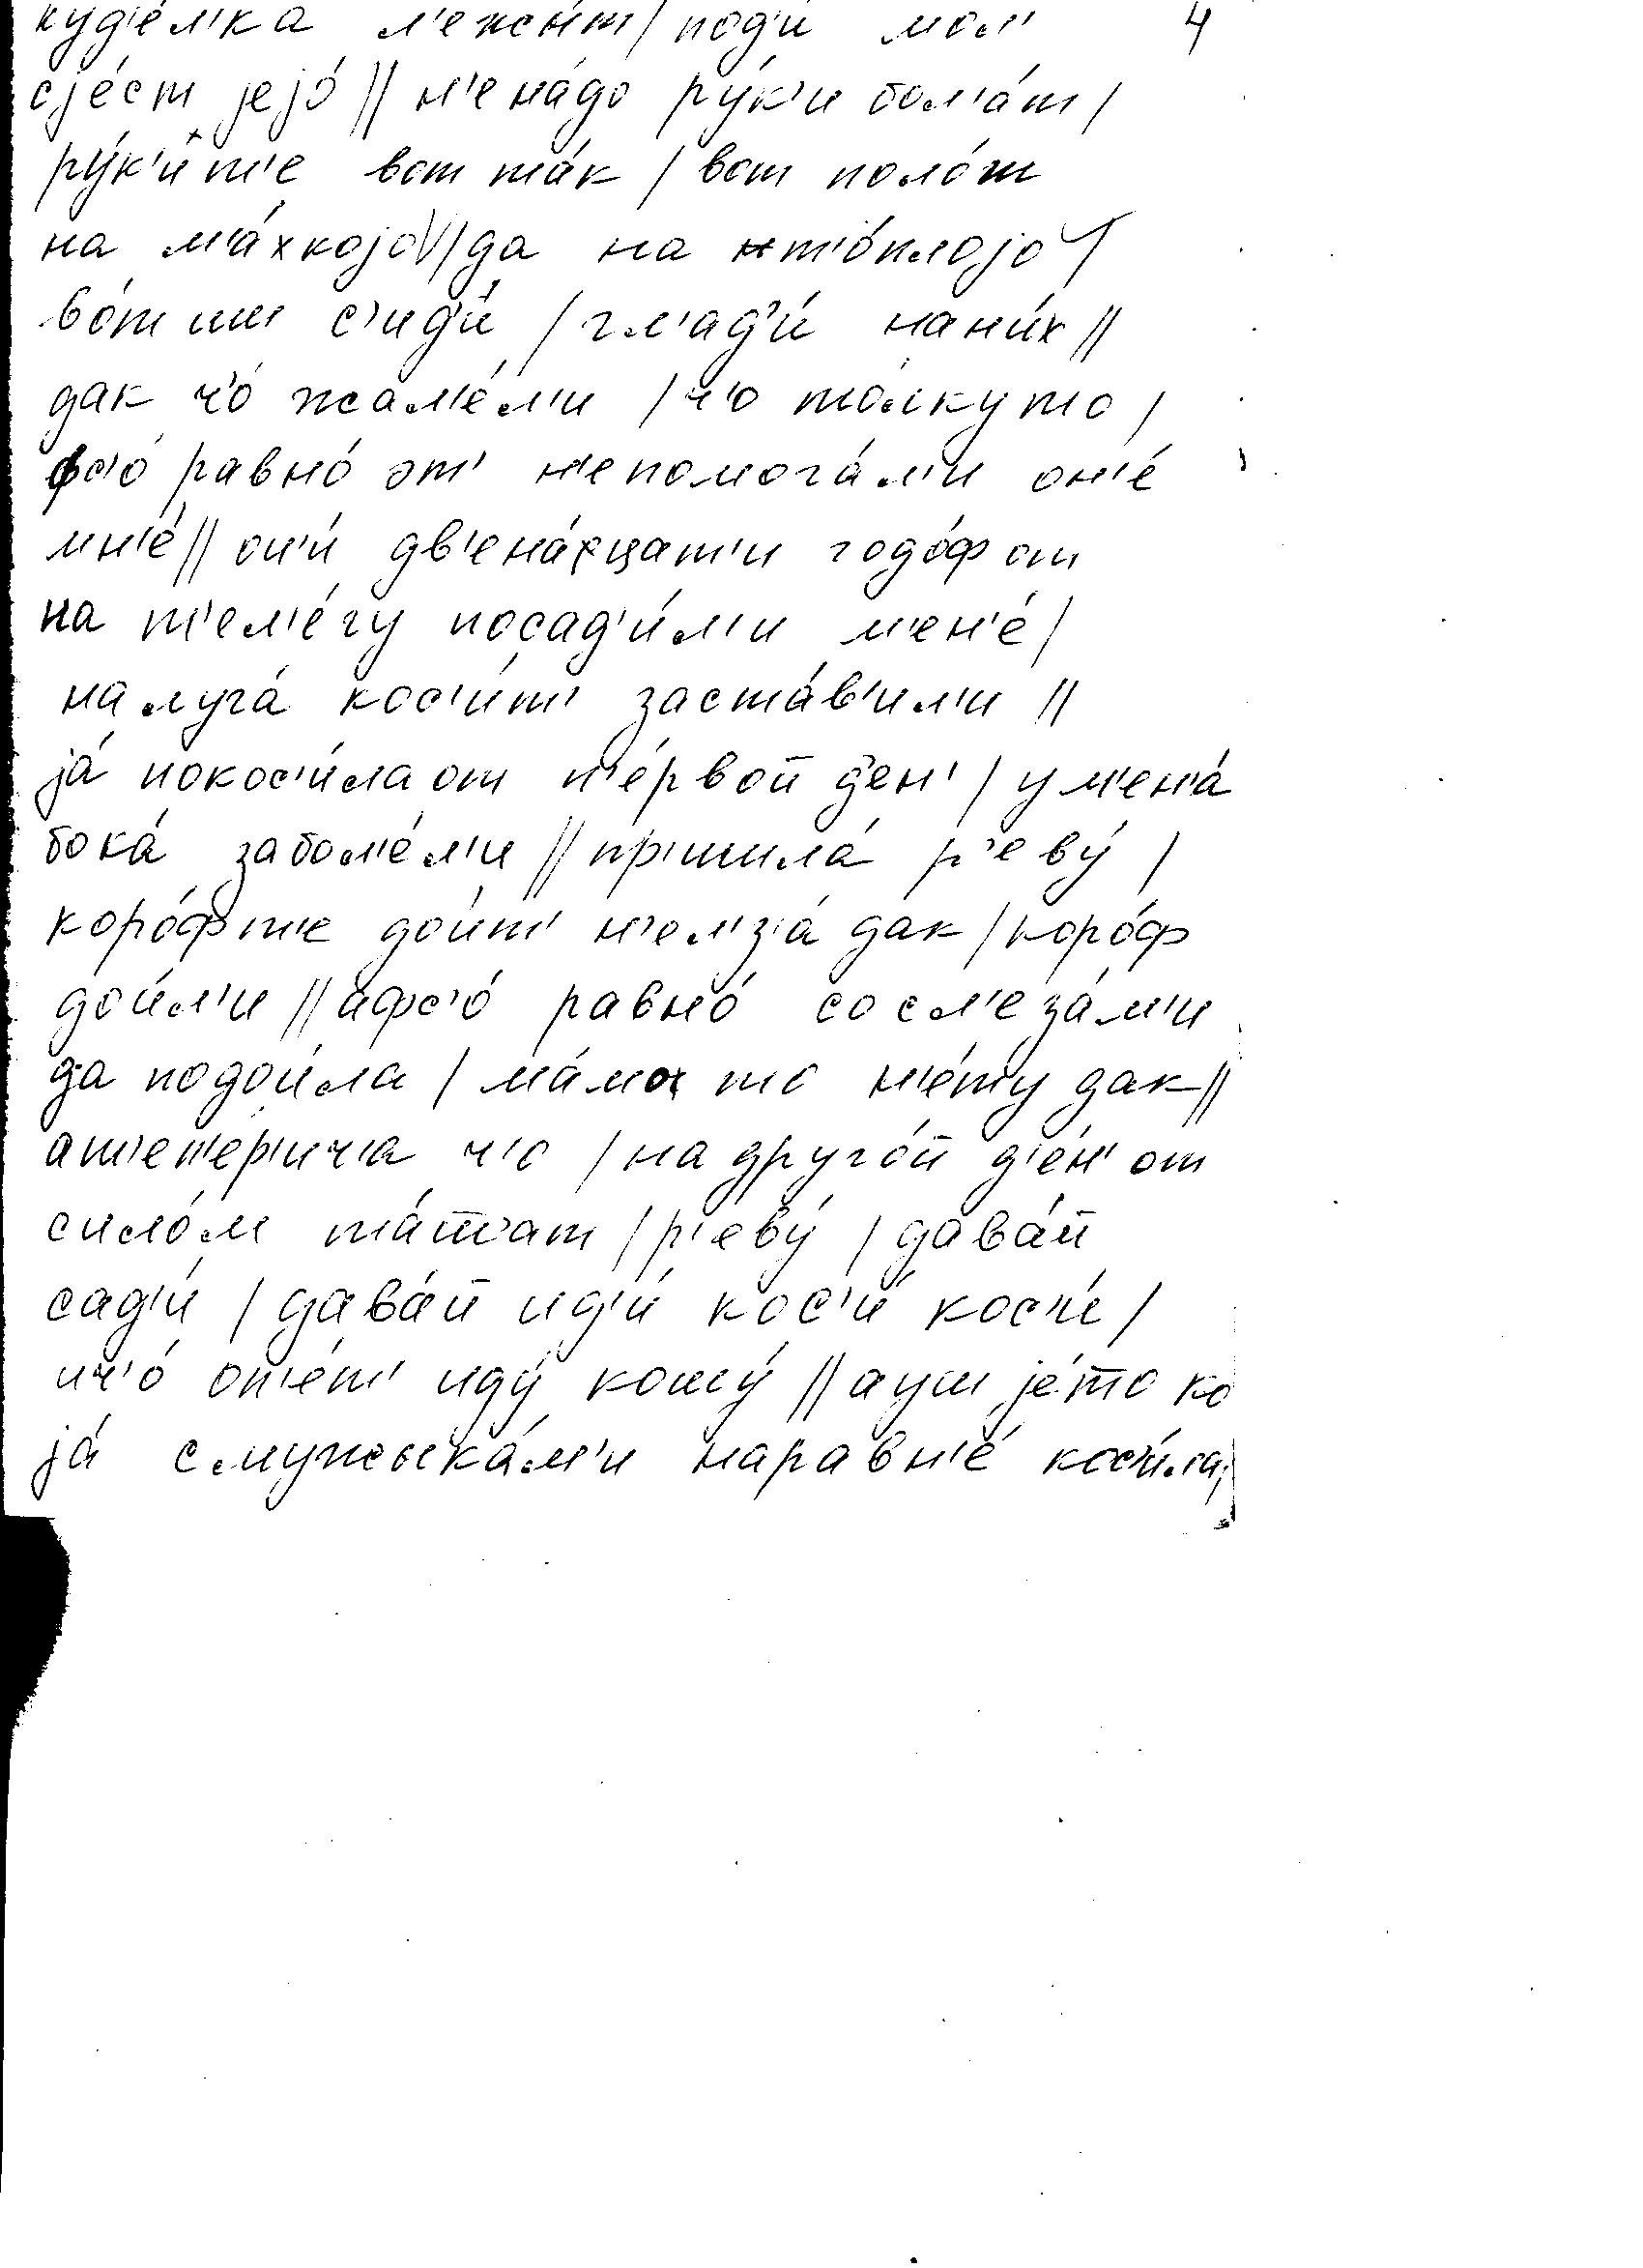 куд'е́л'ка л'ежы́т / под'и́ мол' 4
сје́ст јејо́ // н'ена́до ру́к'и бол'а́т /
ру́к'и т'е вот та́к / вот поло́ж
на м'а́хкојо // да на т'о́плојо /
во́т и ш с'ид'и́ / гл'ад'и́ на них //
дак ч'о́ жал'е́л'и / ч'о то́лку то /
фс'о́ равно́ эт' н'епомога́л'и он'е́
мн'е́ // он'и́ дв'ена́хцат'и годо́ф от
на т'ел'е́гу посад'и́л'и м'ен'е́ /
на луга́ кос'и́т' заста́в'ил'и //
ја́ покос'и́ла от п'е́рвой д'ен' / у м'ен'а́
бока́ забол'е́л'и // пр'ишла́ р'еву́ /
коро́ф т'е дои́т' н'ел'з'а́ дак / коро́ф
дои́л'и // а фс'о́ равно́ со сл'еза́м'и
да подои́ла / ма́ма то н'е́ту дак //
а т'еп'е́р'ич'а ч'о / на друго́й д'е́н' от
сило́м та́шшат / р'еву́ / дава́й
сад'и́ / дава́й ид'и́ кос'и́ кос'и́ /
и ч'о́ оп'е́т' иду́ кошу́ // а уш је́то ко
ја́ с мужыка́м'и наравн'е́ кос'и́ла,